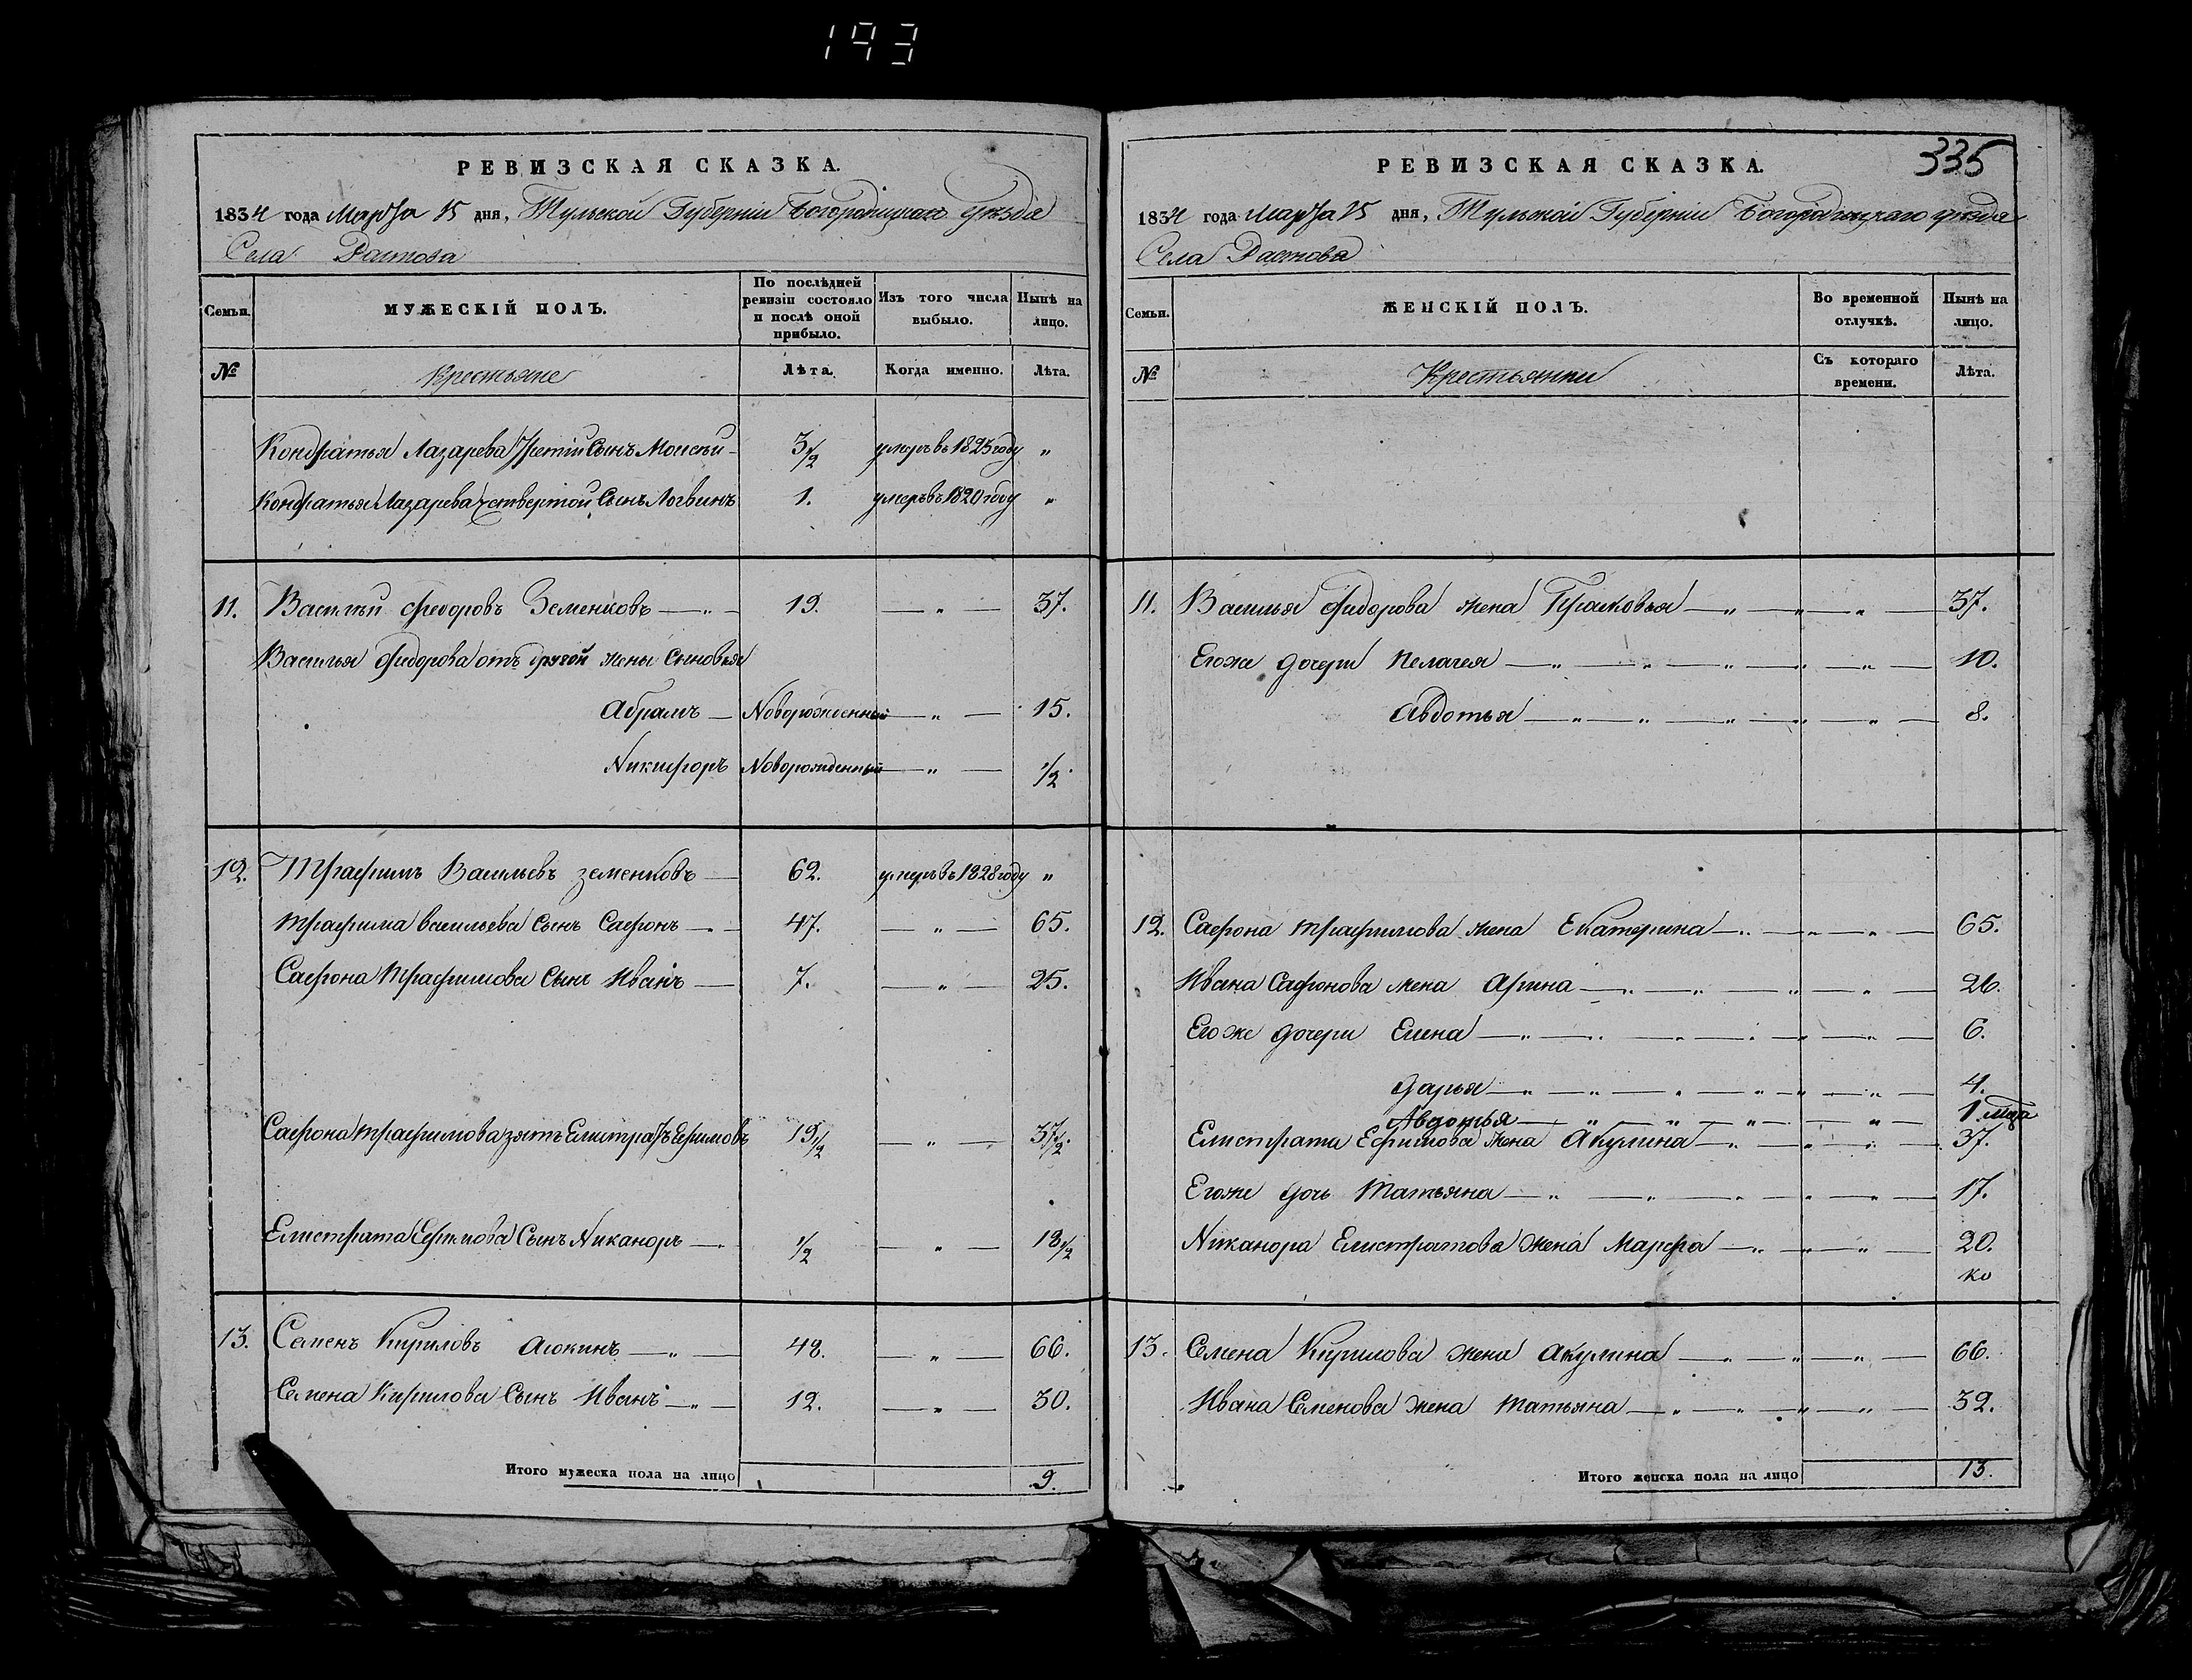 193
РЕВИЗСКАЯ СКАЗКА.
1834 года Марта 15 дня, Тульской Губерніи Богородицкаго уѣзда
Села
МУЖЕСКІЙ ПОЛЪ.
Семьи.
По послѣдней ревизіи состояло и послѣ оной прибыло.
Изъ того числа выбыло.
Нынѣ на лицо.
№ Крестьяне Лѣта. Когда именно. Лѣта.
Кондратья Лазарева третій Сынъ Моисей 3 1/2 умеръ въ 1825 году "
Кондратья Лазарева четвертой Сынъ Логвинъ 1. умеръ въ 1820 году "
11. Василій Федоровъ Земенковъ — " — 19. — " — 37.
Василья Федорова отъ другой жены сыновья
Абрамъ — Новорожденный — " — 15.
Никифоръ Новорожденный — " — 1/2
12. Трафимъ Васильевъ Земенковъ — 62. умеръ въ 1828 году "
Трафима Васильева Сынъ Сафронъ — 47. — " — 65.
Сафрона Трафимова Сынъ Иванъ — 7. — " — 25.
Сафрона Трафимова зять Елистратъ Ефимовъ 19 1/2 — " — 37 1/2.
Елистрата Ефимова Сынъ Никаноръ — 1/2 — " — 18 1/2
13. Семенъ Кириловъ Аюкинъ — " — 48. — " — 66.
Семена Кирилова Сынъ Иванъ — " — 12. — " — 30.
Итого мужеска пола на лицо 9.
335
РЕВИЗСКАЯ СКАЗКА.
1834 года Марта 15 дня, Тульской Губерніи Богородицкаго уѣзда
Села
Семьи.
ЖЕНСКІЙ ПОЛЪ.
Во временной отлучкѣ.
Нынѣ на лицо.
№ Крестьянки Съ котораго времени. Лѣта.
11. Василья Федорова жена Прасковья — " — " — " — 37.
Егоже дочери Пелагея — " — " — " — " — " — 10.
Авдотья — " — " — " — " — " — 8.
12. Сафрона Трафимова жена Екатерина — " — " — " — 65.
Ивана Сафронова жена Арина — " — " — " — " — 26.
Егоже дочери Елена — " — " — " — " — " — " — 6.
Дарья — " — " — " — " — " — " — 4.
Авдотья — " — " — " — " — " — 1 мца
Елистрата Ефимова жена Акулина — " — " — " — 37.
Егоже дочь Татьяна — " — " — " — " — " — 17.
Никанора Елистратова жена Марфа — " — " — " — 20.
ко
13. Семена Кирилова жена Акулина — " — " — " — 66.
Ивана Семенова жена Татьяна — " — " — " — " — 32.
Итого женска пола на лицо 13.